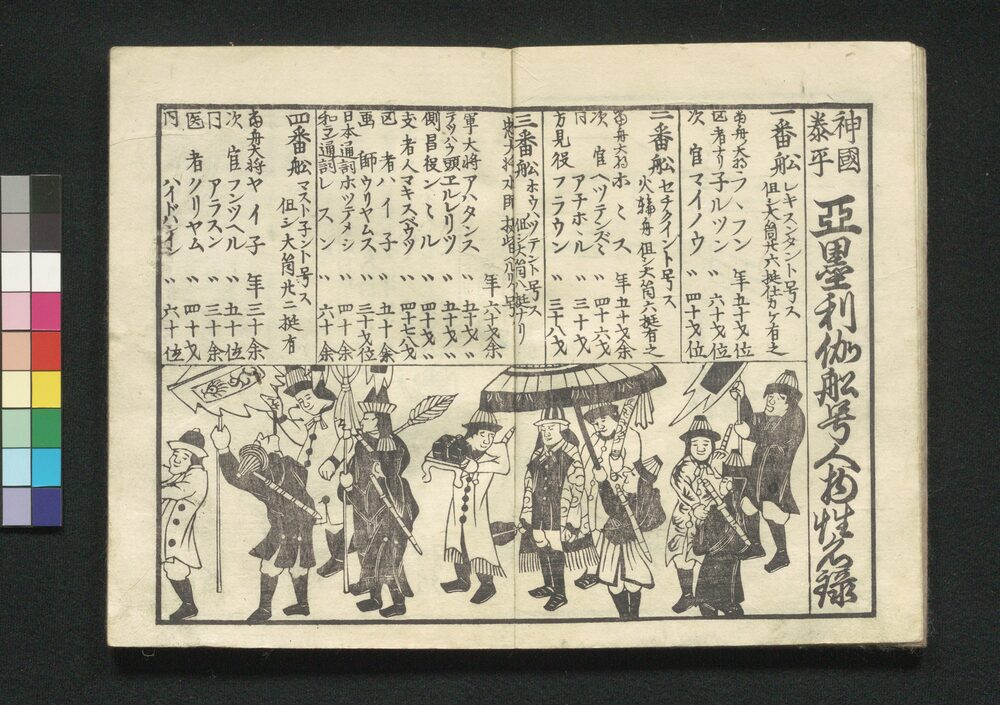 神國
泰平
亞墨利伽舩号人物性名録
一番舩 レキスンタント号ス
但シ大筒廿六挺仕カケ有之
ラヽフン 年五十才位
医者ナリ子ルツン 〃 六十才位
次官マイノウ 〃 四十才位
二番舩 セチクイント号ス
火輪舟 但シ大筒六挺有之
ホミス 年五十才余
次官ヘツテンズミ 〃 四十六才
同 アチホル 〃 三十才
方見役フラウン 〃 三十八才
三番舩 ホウハツテント号ス
但シ大筒八挺ナリ
年六十才余
軍大将アハタンス 〃 五十才〃
テツハウ頭エルレリツ 〃 五十才〃
側昌役ンミル 〃 四十才〃
支者人マキスベウツ 〃 四十七八才
医者ハイ子 〃 六十才余
画師ウリヤムス 〃 三十才位
日本通詞ホツテメシ
和王通詞レスン 〃 六十余
四番舩 マスト子シト号ス
但シ大筒廿二挺有
ヤイ子 年三十余
次官フンツヘル 〃 五十位
同 アラスン 〃 三十余
医者クリヤム 〃 四十才
同 ハイドハンイン 〃 六十位